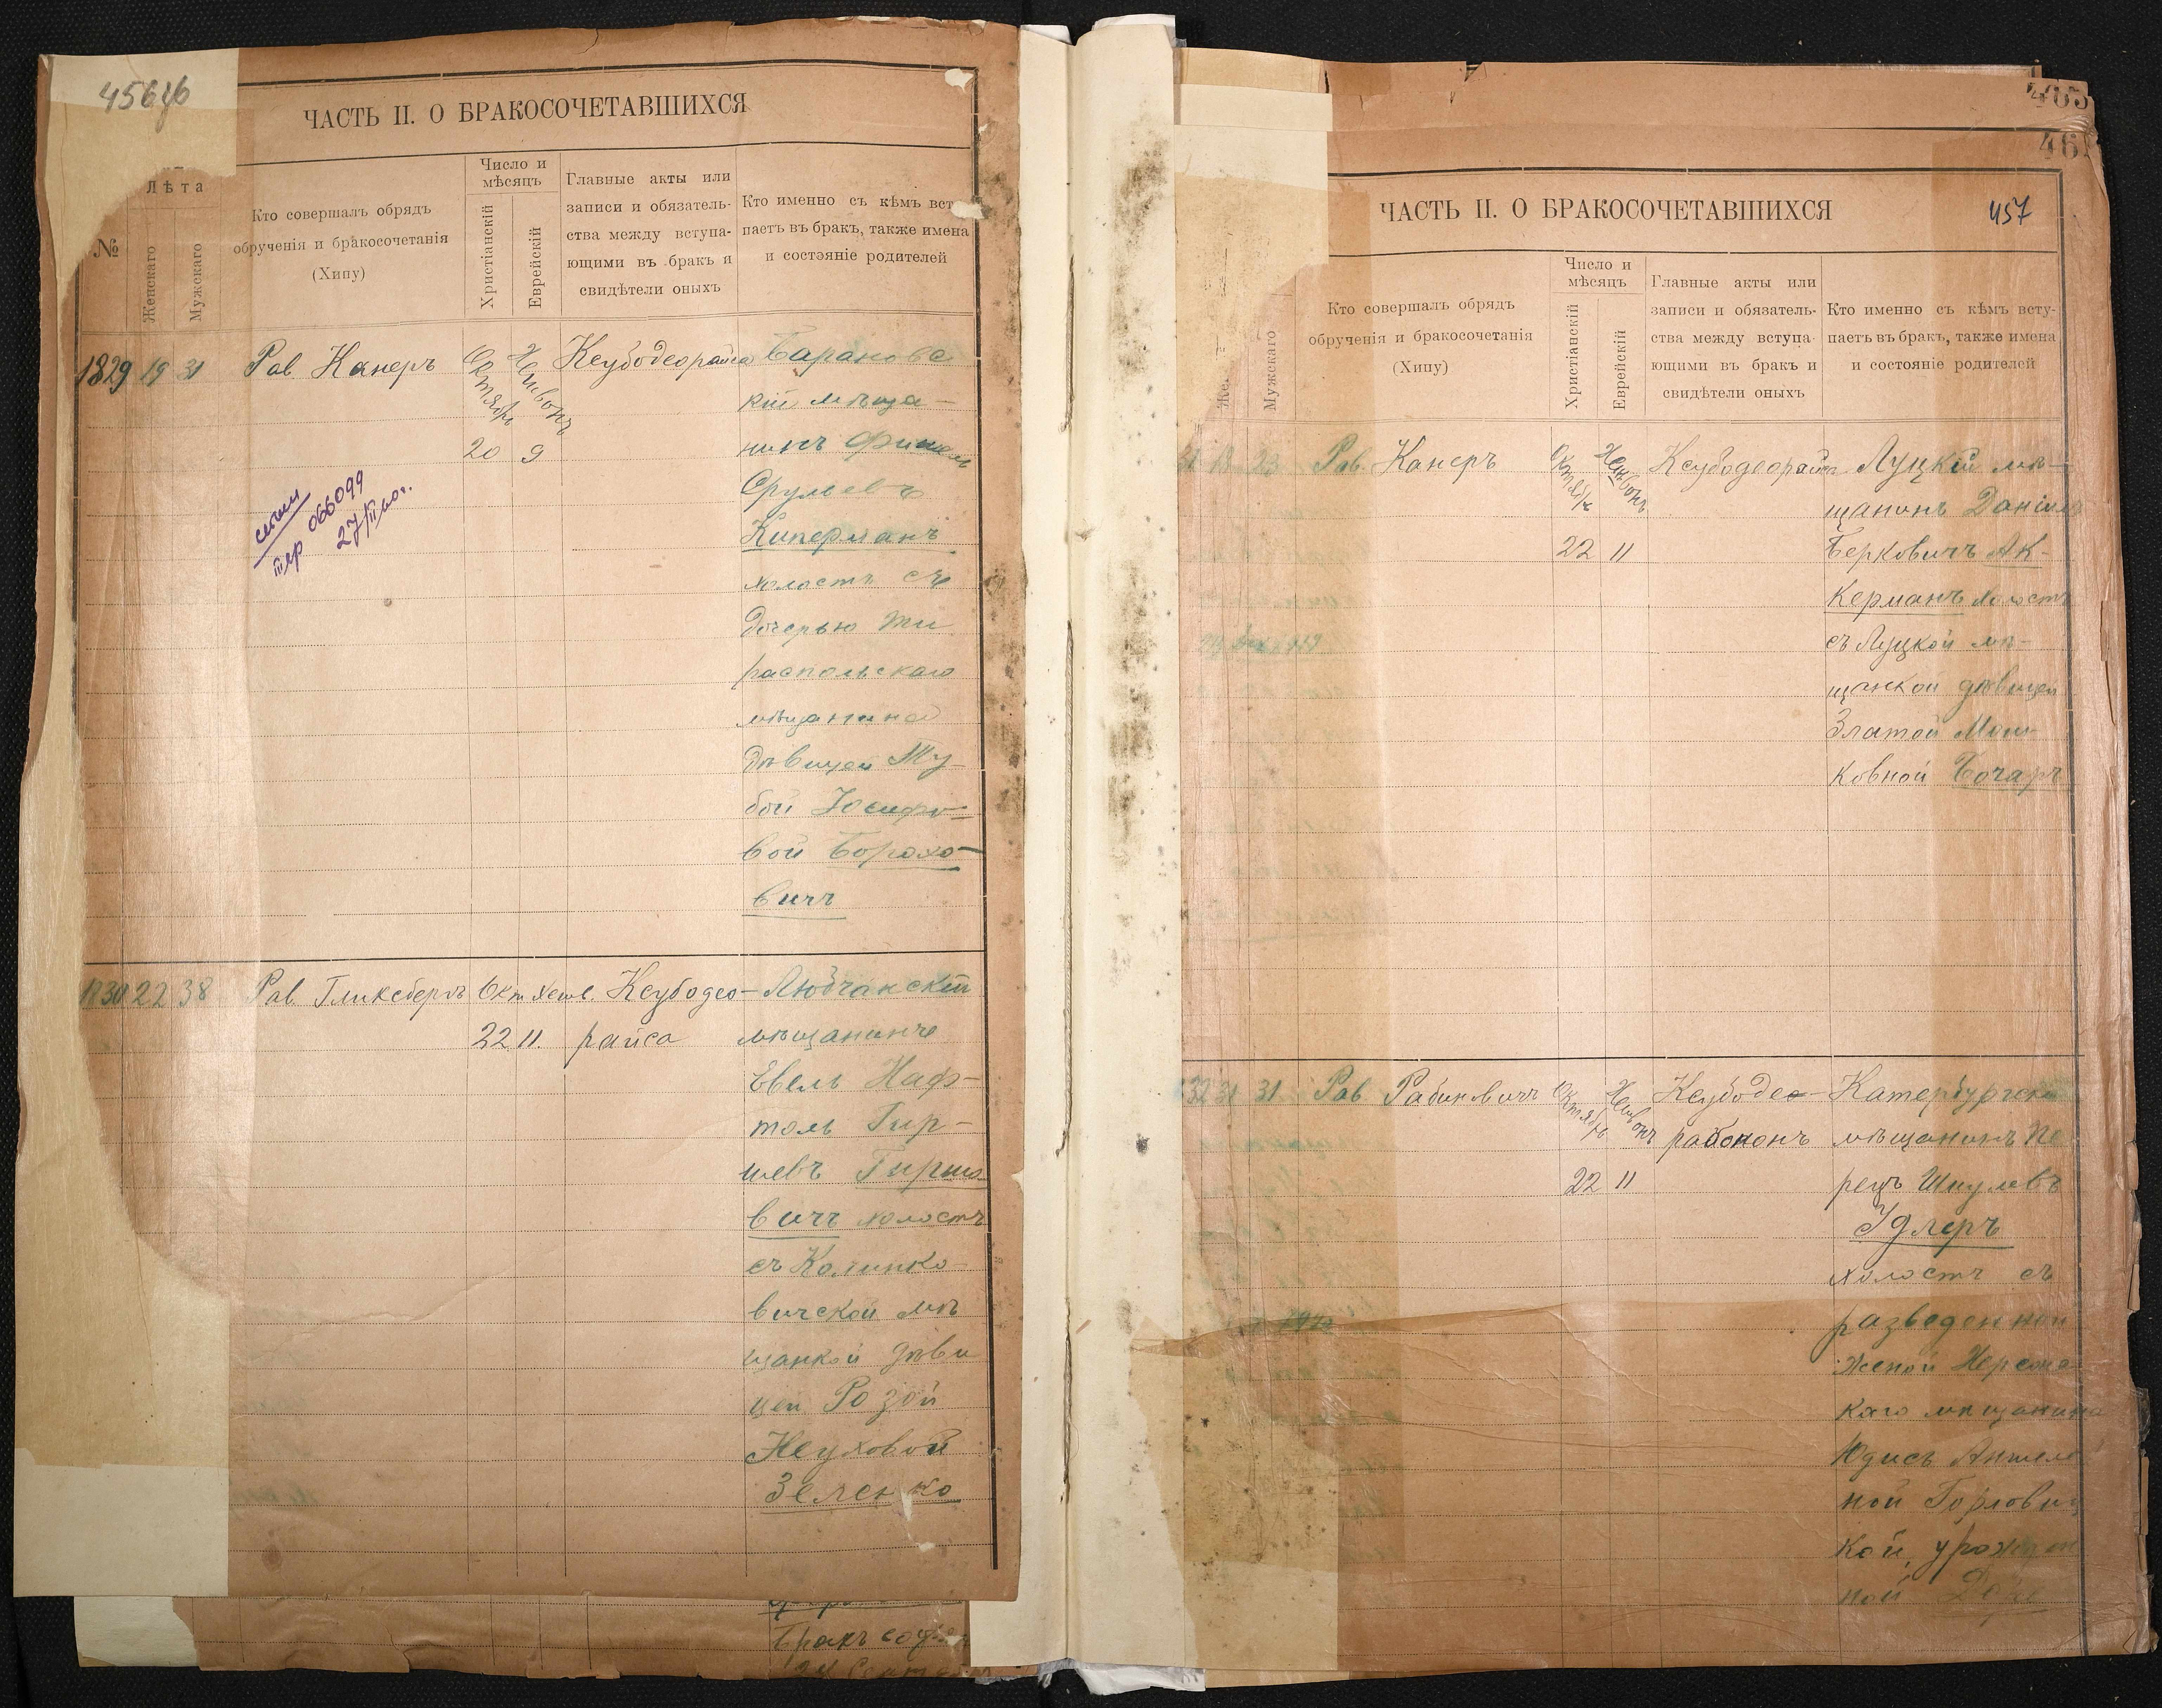 456
ЧАСТЬ II. О БРАКОСОЧЕТАВШИХСЯ
№
Лѣта
Женскаго
Мужскаго
Кто совершалъ обрядъ
обрученія и бракосочетанія
(Хипу)
Число и
мѣсяцъ
Христіанскій
Еврейскій
Главные акты или
записи и обязатель-
ства между вступа-
ющими въ бракъ и
свидѣтели оныхъ
Кто именно съ кѣмъ вст
паетъ въ бракъ, также имена
и состояніе родителей
1829 19 31 Рав Канеръ Октябрь Хешвонъ Ксубодеорайса Барановс
кій мѣща-
20 9 нинъ Фишель
Срулевъ
Киперманъ
холостъ съ
дочерью Ти
распольскаго
мѣщанина
дѣвицей Ту-
бой Іосифо-
вой Борохо-
вичъ
066099
1830 22 38 Рав Гликсбергъ Окт Хешв. Ксубодео- Любчанскій
22 11. райса мѣщанинъ
Евель Наф-
толь Гир-
шевъ Гиршо
вичъ холостъ
съ Калинко-
вичской мѣ
щанкой дѣви
цей Розой
Неуховой
Зеленко
Бракъ
465
46
ЧАСТЬ II. О БРАКОСОЧЕТАВШИХСЯ
457
Мужскаго
Кто совершалъ обрядъ
обрученія и бракосочетанія
(Хипу)
Число и
мѣсяцъ
Христіанскій
Еврейскій
Главные акты или
записи и обязатель-
ства между вступа-
ющими въ бракъ и
свидѣтели оныхъ
Кто именно съ кѣмъ всту-
паетъ въ бракъ, также имена
и состояніе родителей
23 Рав. Канеръ Октябрь Хешвонъ Ксубодеорайса Луцкій мѣ-
щанинъ Даніилъ
22 11 Берковичъ Ак-
керманъ холостъ
съ Луцкой мѣ-
щанкой дѣвицей
Златой Мош-
ковной Бочаръ
32 31 31 Рав Рабиновичъ Октябрь Хешвонъ Ксубоде- Катербургскій
рабононъ мѣщанинъ Пе
22 11 рецъ Шмулевъ
Идлеръ
холостъ съ
разведенной
женой Херсонс
каго мѣщанина
Юдисъ Аншеле
ной Горлов
кой, урожден
ной